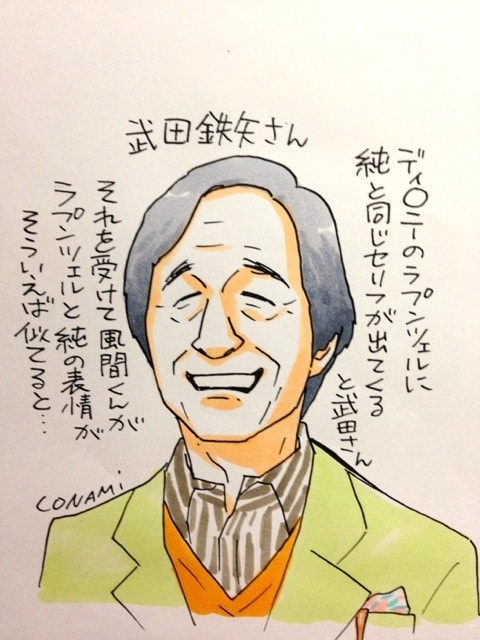 武田鉄矢さん
ディ〇ニーのラプンツェルに
純と同じセリフが出てくる
と武田さん
それを受けて風間くんが
ラプンツェルと純の表情が
そういえば似てると…
CONAMi